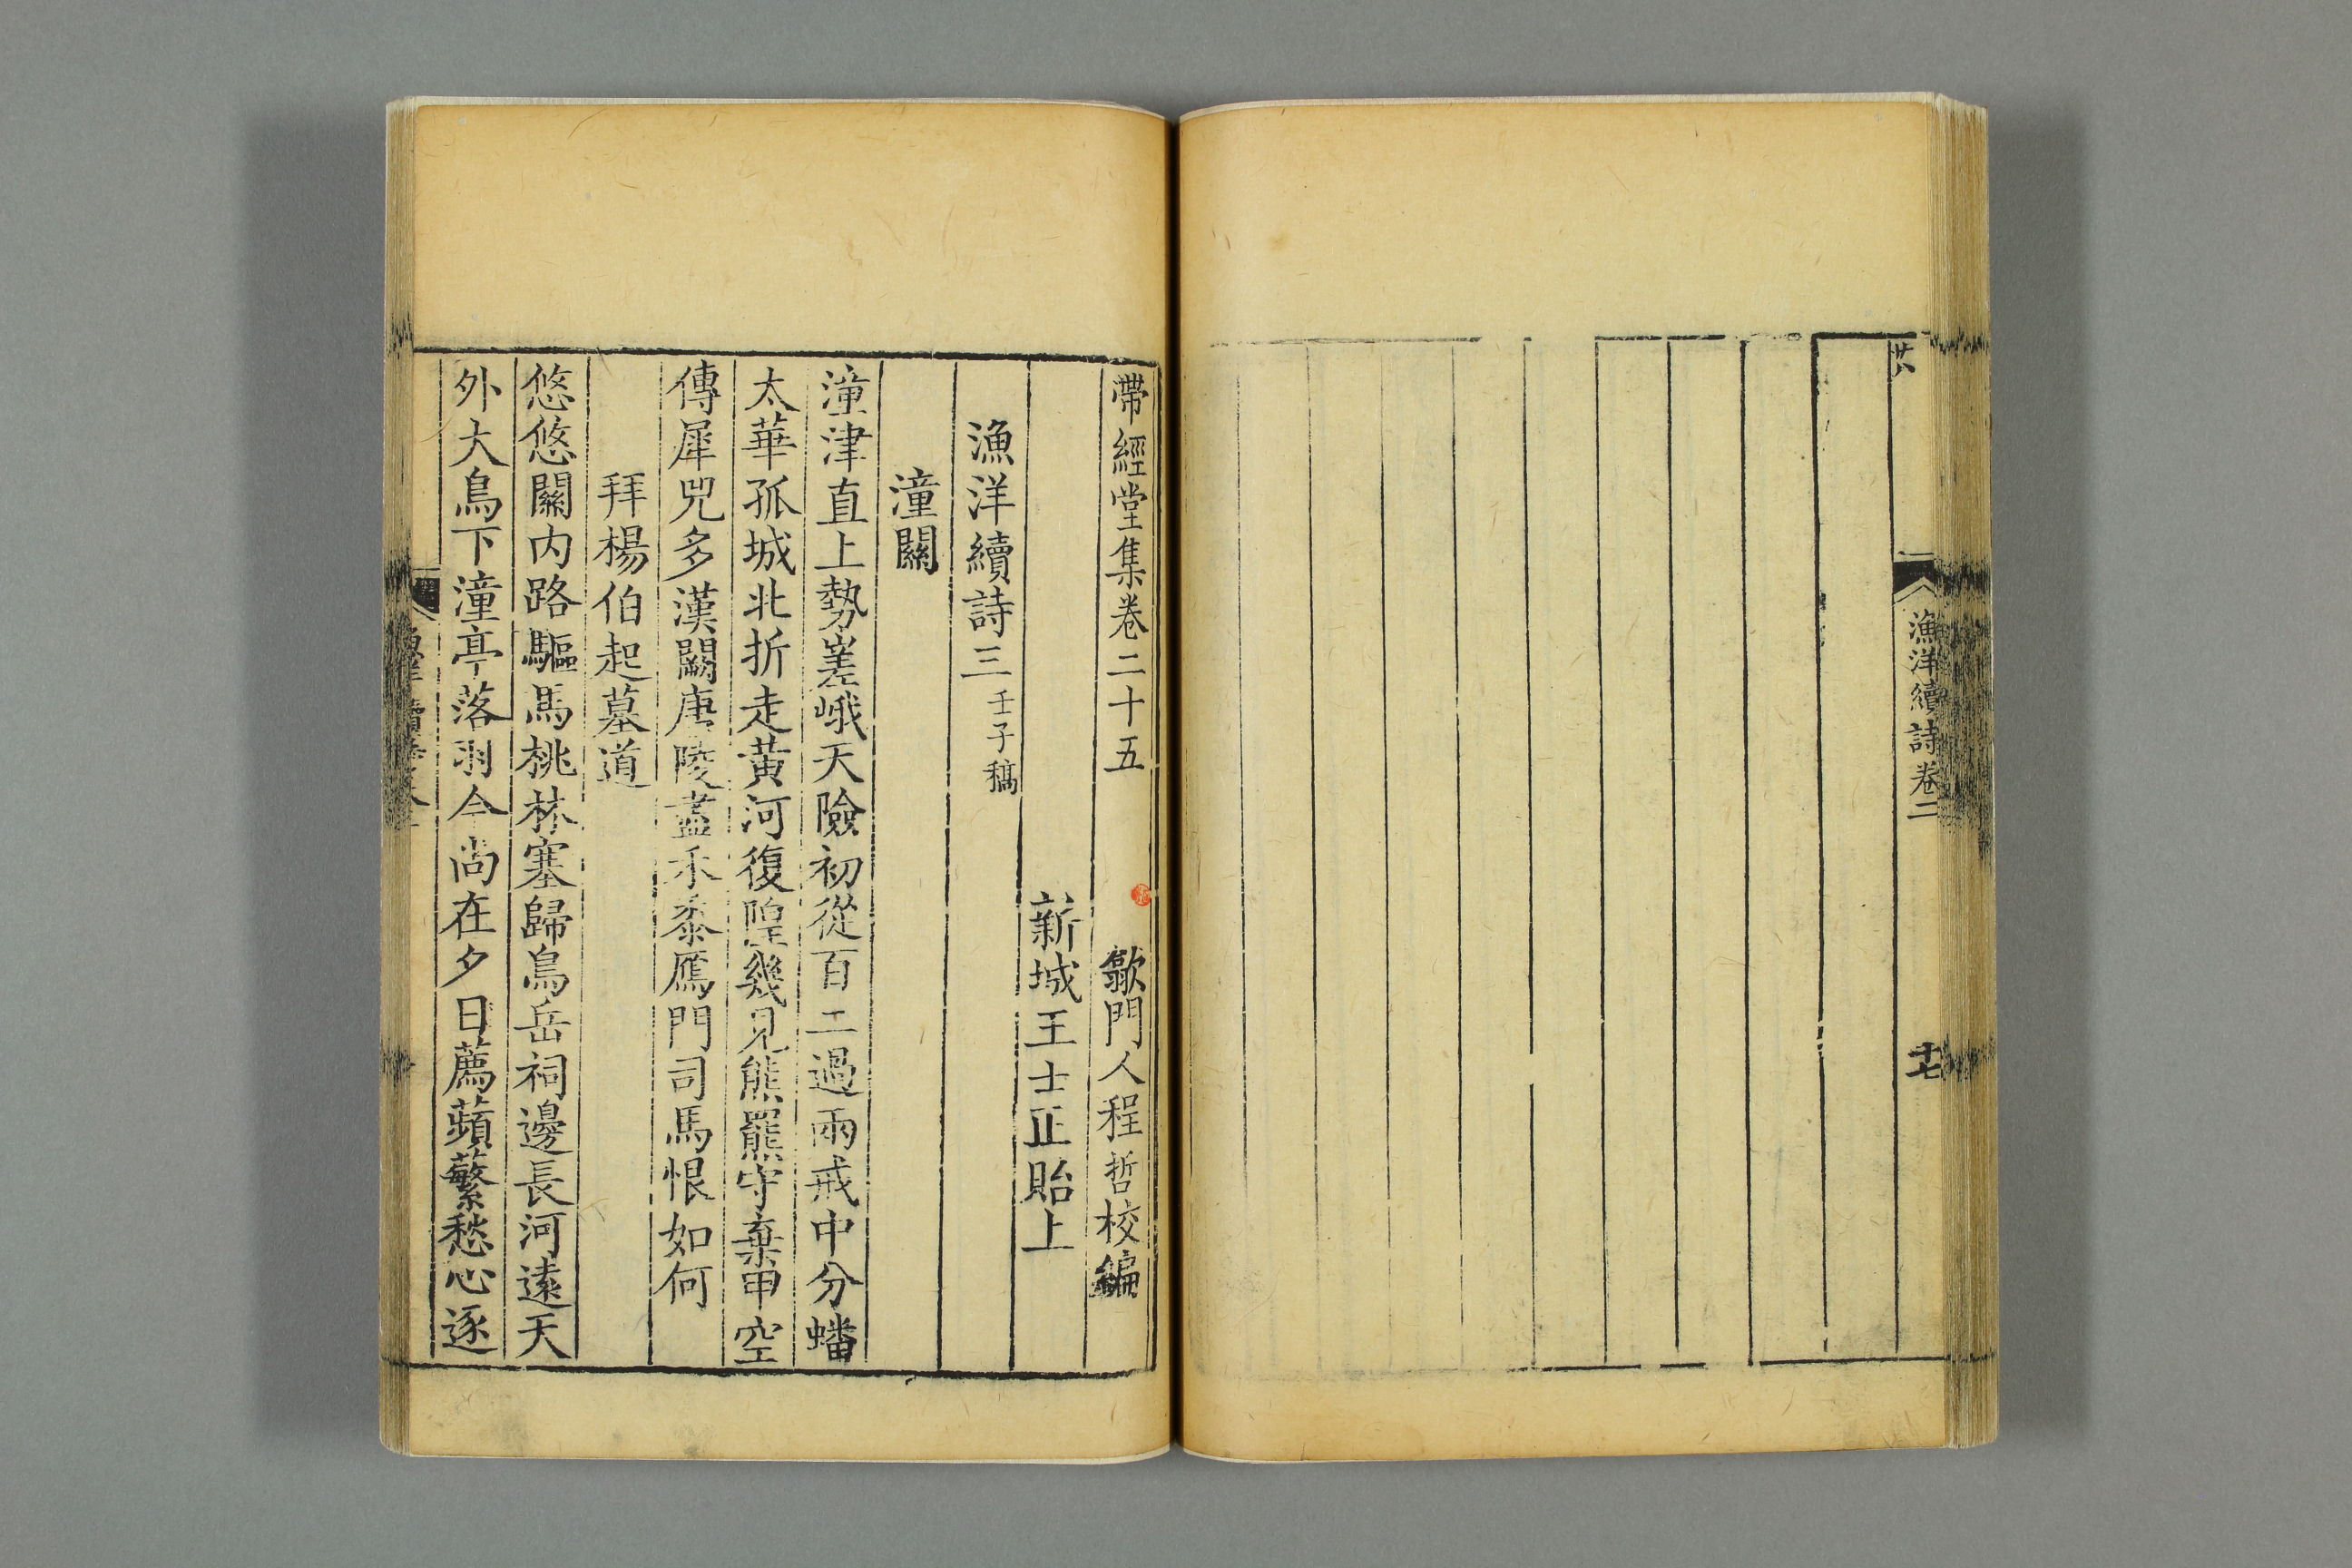 漁洋續詩卷二
十七
帶經堂集卷二十五　歙門人程哲校編
新城王士正貽上
漁洋續詩三 壬子稿
潼關
潼津直上勢嵳峨天險初從百二過兩戒中分蟠
太華孤城北折走黃河復隍幾見熊羆守棄甲空
傳犀兕多漢闕唐陵盡禾黍雁門司馬恨如何
拜楊伯起墓道
悠悠關內路驅馬桃林塞歸鳥岳祠邊長河遠天
外大鳥下潼亭落羽今尚在夕日薦蘋蘩愁心逐